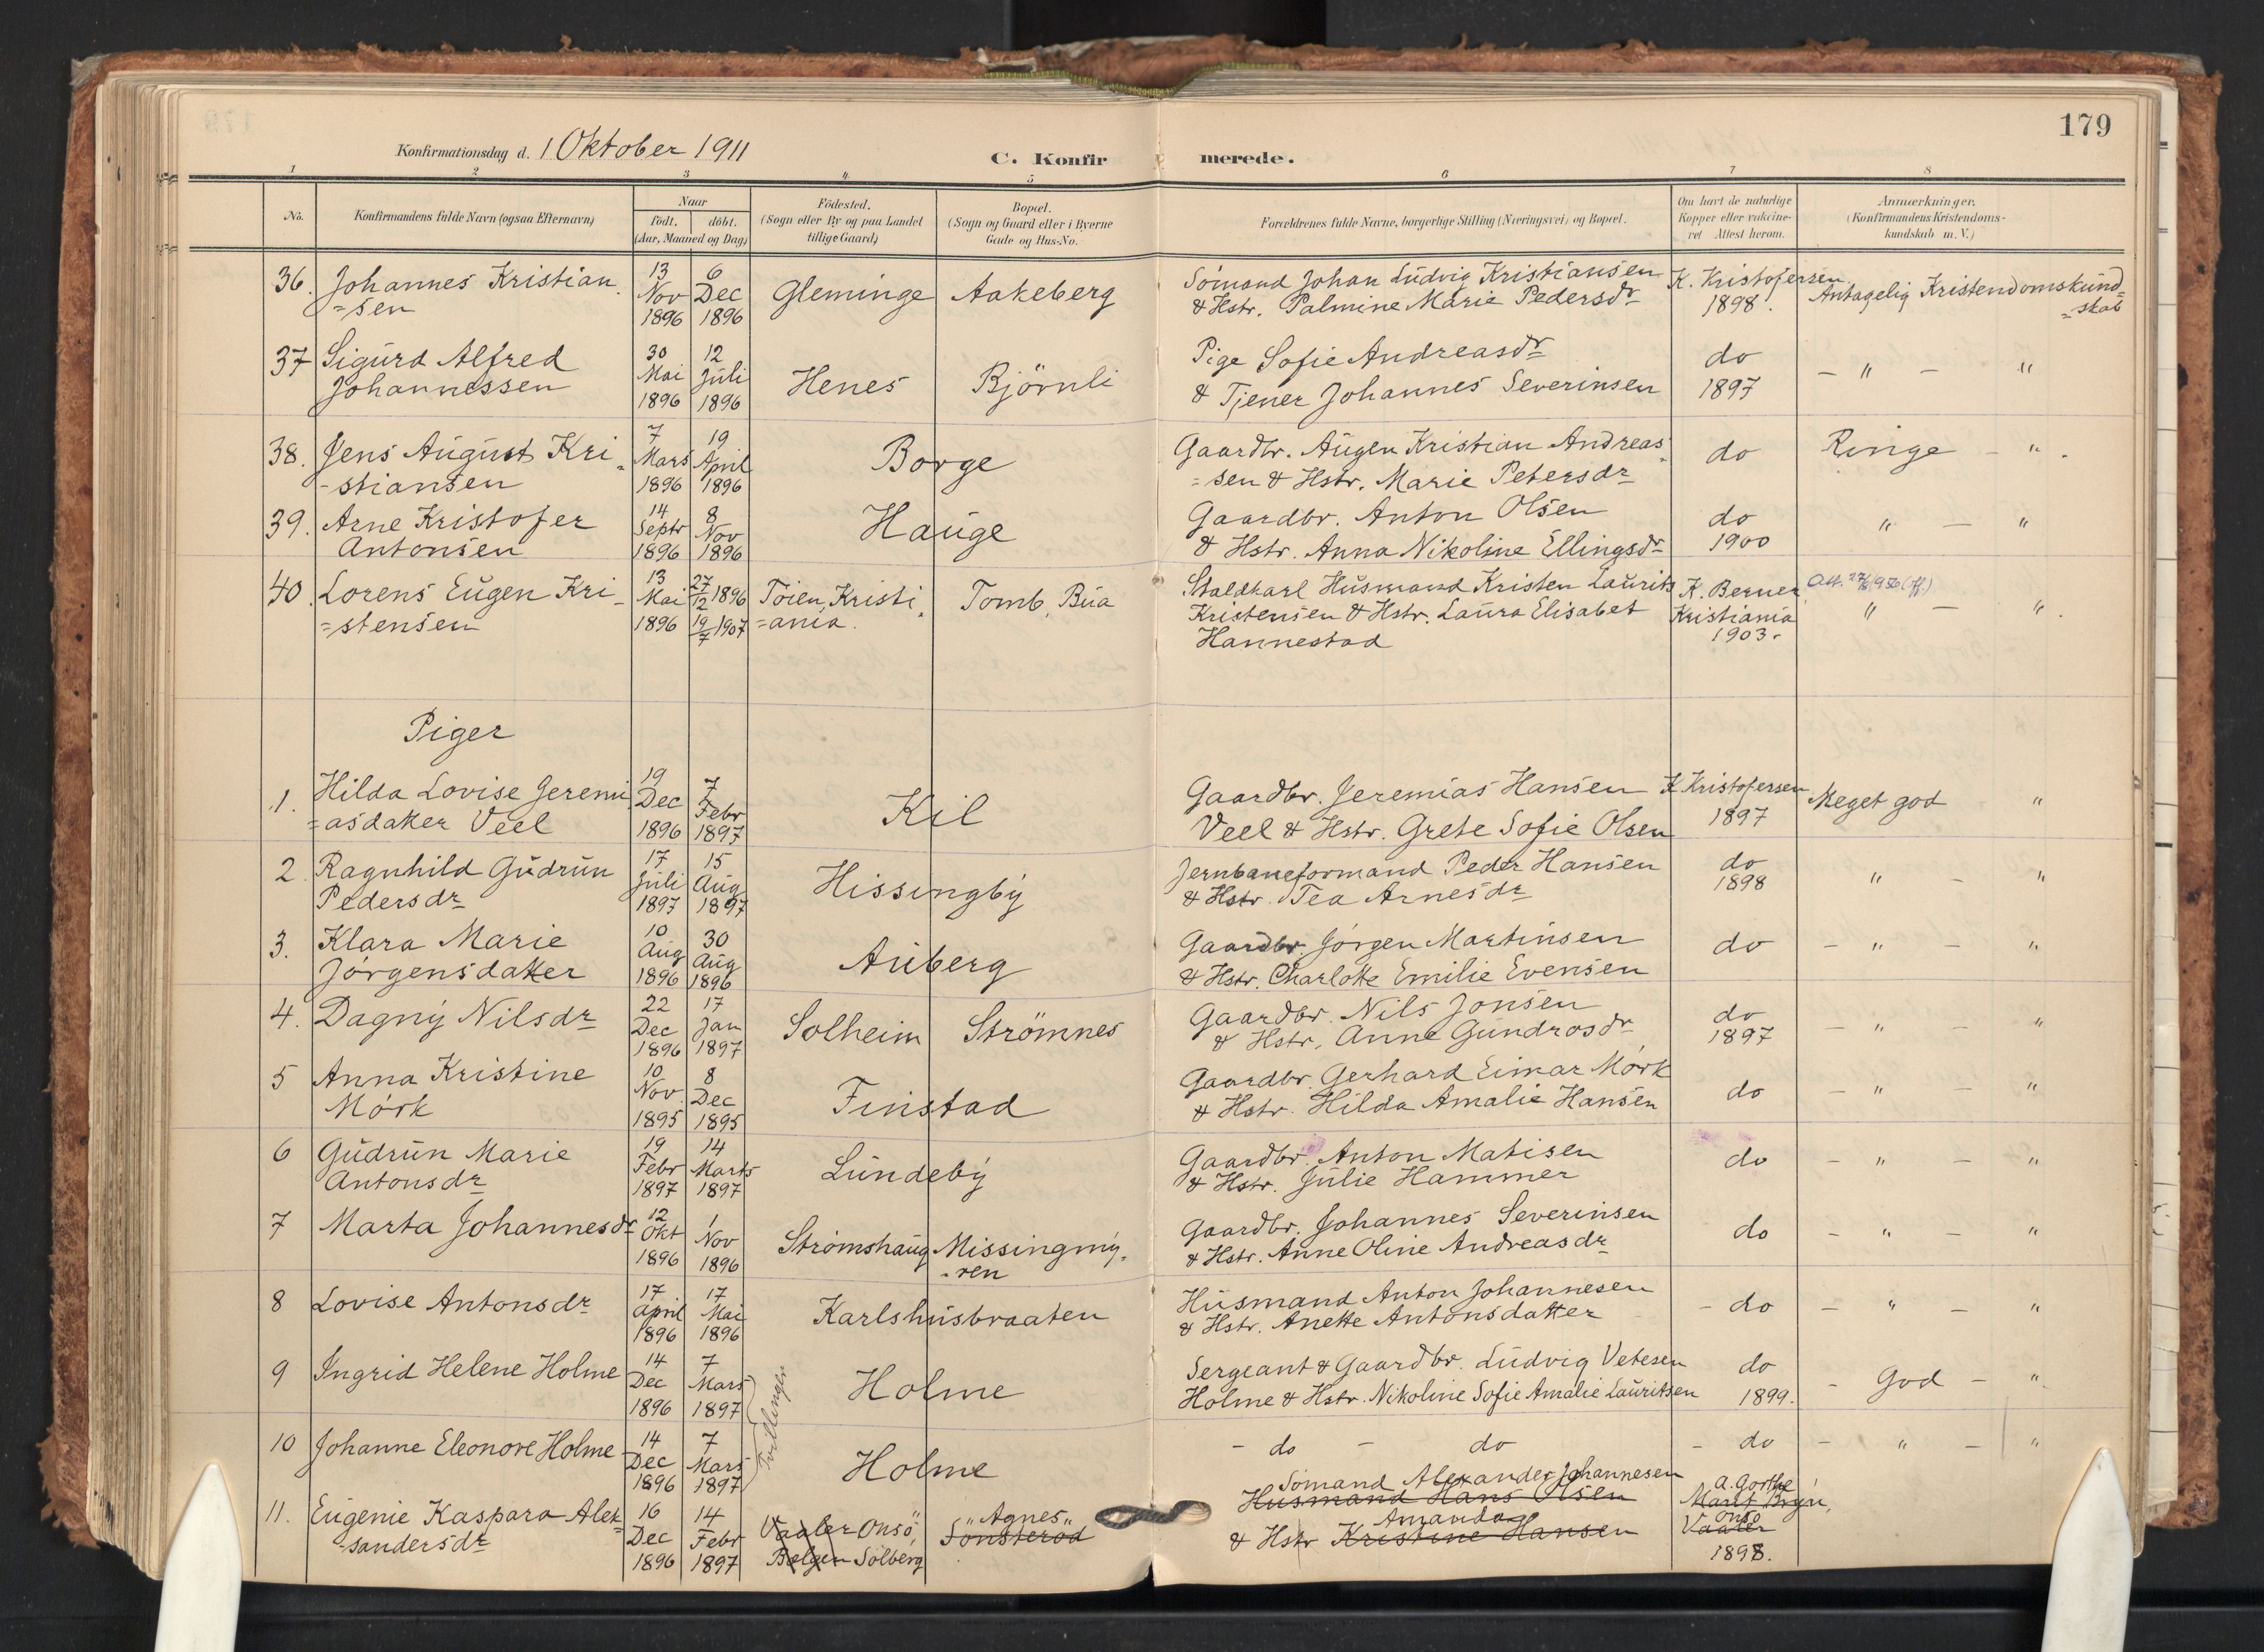 179
Konfirmationsdag d. 1 Oktober 1911
C. Konfirmerede.
1 2 3 4 5 6 7 8
No. Konfirmandens fulde Navn (ogsaa Efternavn) Naar født. døbt. (Aar, Maaned og Dag) Födested. (Sogn eller By og paa Landet tillige Gaard) Bopæl. (Sogn og Gaard eller i Byerne Gade og Hus-No. Forældrenes fulde Navne, borgerlige Stilling (Næringsvei) og Bopæl. Om havt de naturlige Kopper eller vaccineret Attest herom. Anmærkninger. (Konfirmandens Kristendomskundskab m. V.)
36. Johannes Kristian- 13 Nov 1896 6 Dec 1896 Gleminge Aakeberg Sömand Johan Ludvig Kristiansen K. Kristofersen Antagelig Kristendomskund-
=sen & Hstr. Palmine Marie Pedersdr 1898. =skab
37 Sigurd Alfred 30 Mai 1896 12 Juli 1896 Henes Björnli Pige Sofie Andreasdr do - " - "
Johannessen & Tjener Johannes Severinsen 1897
38. Jens August Kri- 7 Mars 1896 19 April 1896 Borge Gaardbr. Augen Kristian Andreas- do Ringe - " .
-stiansen =sen & Hstr. Marie Petersdr
39. Arne Kristofer 14 Septr 1896 8 Nov 1896 Hauge Gaardbr. Anton Olsen do " - "
Antonsen & Hstr. Anna Nikoline Ellingsdr 1900
40. Lorens Eugen Kri- 13 Mai 1896 27/12 1896 19/7 1907 Töien, Kristi- Tomb, Bua Staldkarl Husmand Kristen Laurits K. Berner
=stensen =ania. Kristensen & Hstr. Laura Elisabet Kristiania " - " .
Hannestad 1903.
Piger
1. Hilda Lovise Jeremi 19 Dec 1896 7 Febr 1897 Kil Gaardbr. Jeremias Hansen K Kristofersen Meget god "
=asdatter Veel Veel & Hstr. Grete Sofie Olsen 1897
2. Ragnhild Gudrun 17 Juli 1897 15 Aug 1897 Hissingby Jernbaneformand Peder Hansen do " - "
Pedersdr & Hstr. Tea Arnesdr 1898
3. Klara Marie 10 Aug 1896 30 Aug 1896 Auberg Gaardbr. Jörgen Martinsen do - " - "
Jörgensdatter & Hstr. Charlotte Emilie Evensen
4. Dagny Nilsdr 22 Dec 1896 17 Jan 1897 Solheim Strömnes Gaardbr. Nils Jonsen do - " - "
& Hstr. Anne Gundrosdr 1897
5 Anna Kristine 10 Nov. 1895 8 Dec 1895 Finstad Gaardbr. Gerhard Eimar Mörk do - " - "
Mörk & Hstr. Hilda Amalie Hansen
6 Gudrun Marie 19 Febr 1897 14 Marts 1897 Lundeby Gaardbr. Anton Matisen do - " - "
Antonsdr & Hstr. Julie Hammer
7 Marta Johannesdr 12 Okt 1896 1 Nov 1896 Strömshaug Missingmy- Gaardbr. Johannes Severinsen do - " - "
-ren & Hstr. Anne Oline Andreasdr
8 Lovise Antonsdr 17 April 1896 17 Mai 1896 Karlshusbraaten Husmand Anton Johannesen - do - " - "
& Hstr. Anette Antonsdatter
9 Ingrid Helene Holme 14 Dec 1896 7 Mars 1897 Tvillinger Holme Sergeant & Gaardbr. Ludvig Vetesen do - God - "
Holme & Hstr. Nikoline Sofie Amalie Lauritsen 1899.
10 Johanne Eleonore Holme 14 Dec 1896 7 Mars 1897 Holme - do - do - do - " - "
11. Eugenie Kaspara Alek- 16 Dec 1896 14 Febr 1897 Vaaler Onsö " Agnes " Sömand Alexander Johannesen
-sandersdr Bølgen Solberg Sönsteröd Husmand Hans Olsen Marit Bryn,
Amanda Onsö
& Hstr Kristine Hansen Vaaler
1898.